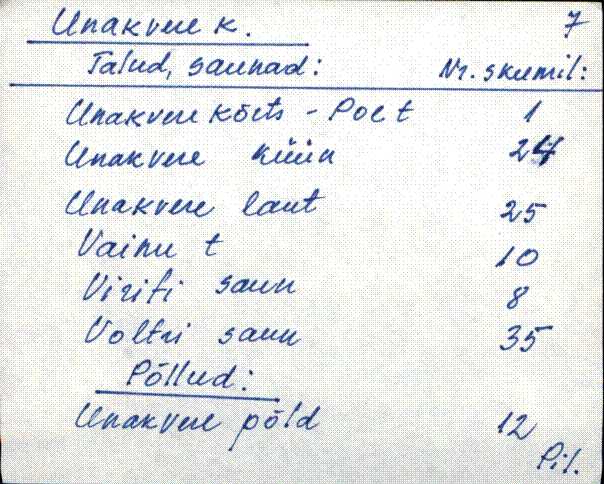 Unakvere k. 7
Talud, saunad: Nr. skeemil:
Unakvere kõrts - Poe t 1
Unakvere küün 24
Unakvere laut 25
Vainu t 10
Viriti saun 8
Voltri saun 35
Põllud:
Unakvere põld 12
Pil.